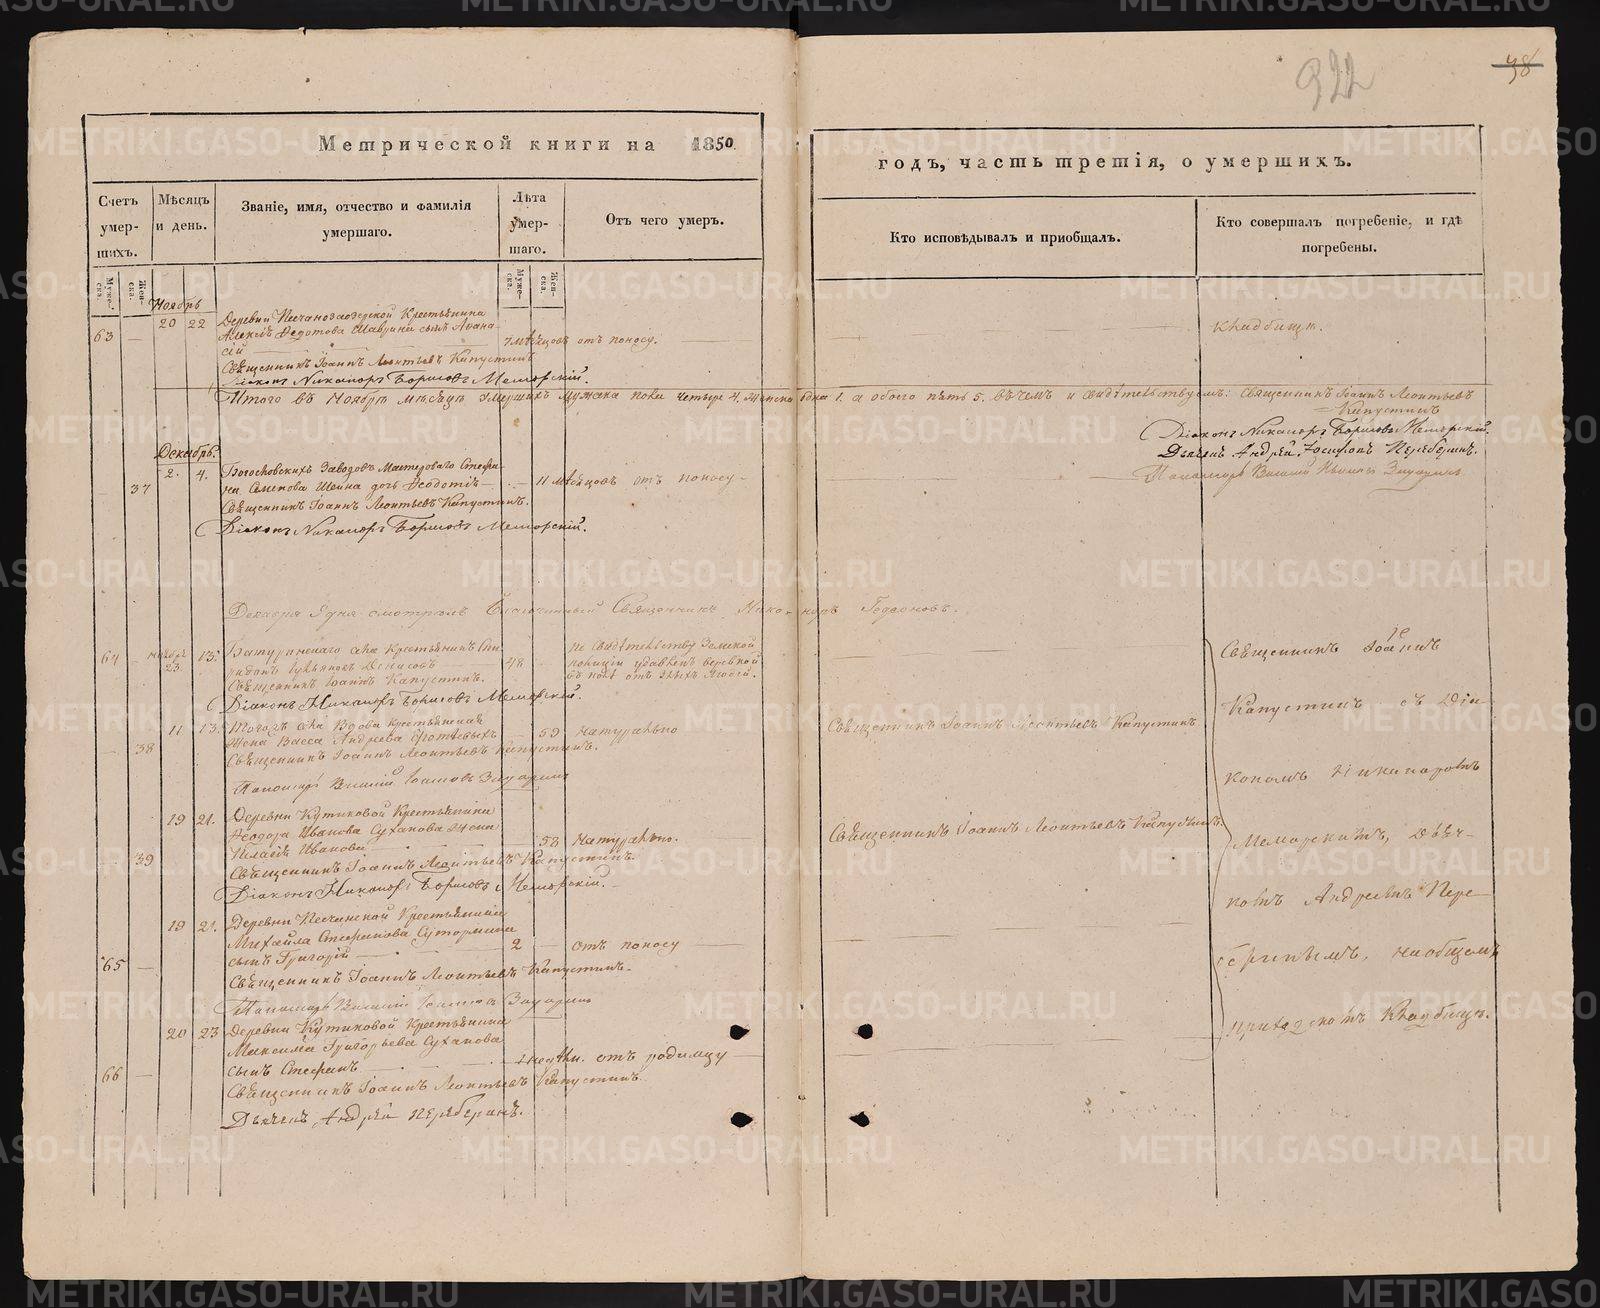 Метрической книги на 1850
Счетъ умер-шихъ.
Мѣсяцъ и день.
Званіе, имя, отчество и фамилія умершаго.
Лѣта умер-шаго.
Отъ чего умеръ.
Муже-ска.
Жен-ска.
Муже-ска.
Жен-ска.
Ноябрь
63 — 20 22 Деревни Песчанозаозерской Крестьянина
Алексѣя Федотова Шаврина сынъ Афана-
сій 7 мѣсяцовъ отъ поносу.
Священникъ Іоаннъ Леонтьевъ Капустинъ
Діаконъ Никаноръ Борисовъ Меморскій.
Итого въ Ноябрѣ мѣсяцѣ умершихъ мужска пола четыре 4. женска одна 1. а обоего пять 5. въ чемъ и свидѣтельствуемъ: Священникъ Іоаннъ Леонтьевъ
Капустинъ
Діаконъ Никаноръ Борисовъ Меморскій.
Дьячекъ Андрей Іосифовъ Переберинъ.
Пономарь
Декабрь.
— 37 2. 4. Богословскихъ Заводовъ Мастероваго Стефа-
на Семенова Шеина дочь Феодотія 11 мѣсяцовъ отъ поносу
Священникъ Іоаннъ Леонтьевъ Капустинъ.
Діаконъ Никаноръ Борисовъ Меморскій.
Декабря 9 дня смотрѣлъ Благочинный Священникъ Никаноръ
64 — Ноябр. 23 13. Батуринскаго села Крестьянинъ Спи-
ридонъ Денисовъ 48
по свидѣтельству Земской
полиціи удавленъ веревкой
въ полѣ отъ злыхъ людей.
Священникъ Іоаннъ Капустинъ.
Діаконъ Никаноръ Борисовъ Меморскій.
— 38 11 13. Тогожъ села Вдова крестьянская
Жена Васса Андреева 59 натурально
Священникъ Іоаннъ Леонтьевъ Капустинъ.
Пономарь Василій
— 39 19 21. Деревни Кутиковой Крестьянина
Феодора Иванова Суханова жена
Пелагія Иванова 58 натурально.
Священникъ Іоаннъ Леонтьевъ Капустинъ.
Діаконъ Никаноръ Борисовъ Меморскій.
65 — 19 21. Деревни Песчанской Крестьянина
Михайла Стефанова Сутормина
сынъ Григорій 2 — отъ поносу
Священникъ Іоаннъ Леонтьевъ Капустинъ.
Пономарь Василій
66 — 20 23 Деревни Кутиковой Крестьянина
Максима Григорьева Суханова
сынъ Стефанъ недѣли. отъ родимцу
Священникъ Іоаннъ Леонтьевъ Капустинъ
Дьячекъ Андрей Переберинъ.
922
98
годъ, часть третія, о умершихъ.
Кто исповѣдывалъ и пріобщалъ.
Кто совершалъ погребеніе, и гдѣ погребены.
кладбищѣ.
Священникъ Іоаннъ Леонтьевъ Капустинъ
Священникъ Іоаннъ Леонтьевъ Капустинъ.
Священникъ Іоаннъ
Капустинъ съ Діа-
кономъ Никаноромъ
Меморскимъ, Дьяч-
комъ Андреемъ Пере-
беринымъ, на общемъ
приходскомъ Кладбищѣ.
METRIKI.GASO-URAL.RU